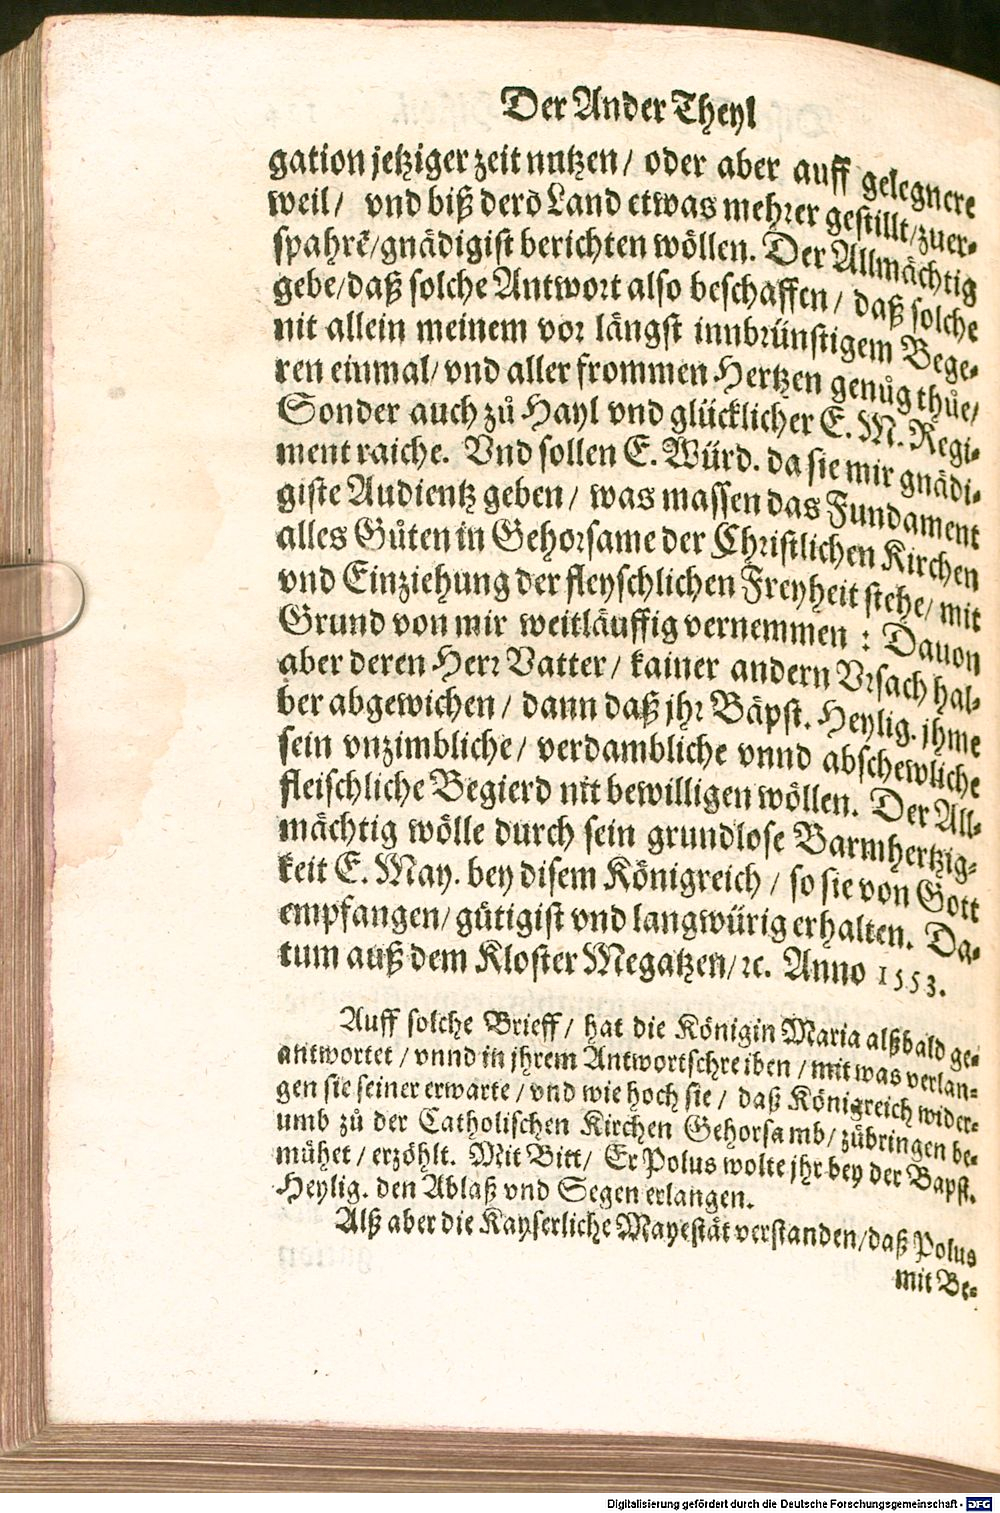 Der Ander Theyl
gation jetziger zeit nutzen/ oder aber auff gelegnere
weil/ vnd biß derō Land etwas mehrer gestillt/zuer-
spahrē/gnädigist berichten wöllen. Der Allmächtig
gebe/daß solche Antwort also beschaffen/ daß solche
nit allein meinem vor längst innbrünstigem Bege-
ren einmal/ vnd aller frommen Hertzen genůg thůe/
Sonder auch zů Hayl vnd glücklicher E. M. Regi-
ment raiche. Vnd sollen E. Würd. da sie mir gnädi-
giste Audientz geben/ was massen das Fundament
alles Gůten in Gehorsame der Christlichen Kirchen
vnd Einziehung der fleyschlichen Freyheit stehe/ mit
Grund von mir weitläuffig vernemmen : Dauon
aber deren Herr Vatter/ kainer andern Vrsach hal-
ber abgewichen/ dann daß jhr Bäpst. Heylig. jhme
sein vnzimbliche/ verdambliche vnnd abschewliche
fleischliche Begierd nit bewilligen wöllen. Der All-
mächtig wölle durch sein grundlose Barmhertzig-
keit E. May. bey disem Königreich/ so sie von Gott
empfangen/ gütigist vnd langwürig erhalten. Da-
tum auß dem Kloster Megatzen/ꝛc. Anno 1553.
Auff solche Brieff/ hat die Königin Maria alßbald ge-
antwortet/ vnnd in jhrem Antwortschreiben/ mit was verlan-
gen sie seiner erwarte/ vnd wie hoch sie/ daß Königreich wider-
umb zů der Catholischen Kirchen Gehorsamb/ zübringen be-
mühet/ erzöhlt. Mit Bitt/ Er Polus wolte jhr bey der Bapst.
Heylig. den Ablaß vnd Segen erlangen.
Alß aber die Kayserliche Mayestät verstanden/daß Polus
mit Be-
Digitalisierung gefördert durch die Deutsche Forschungsgemeinschaft - DFG